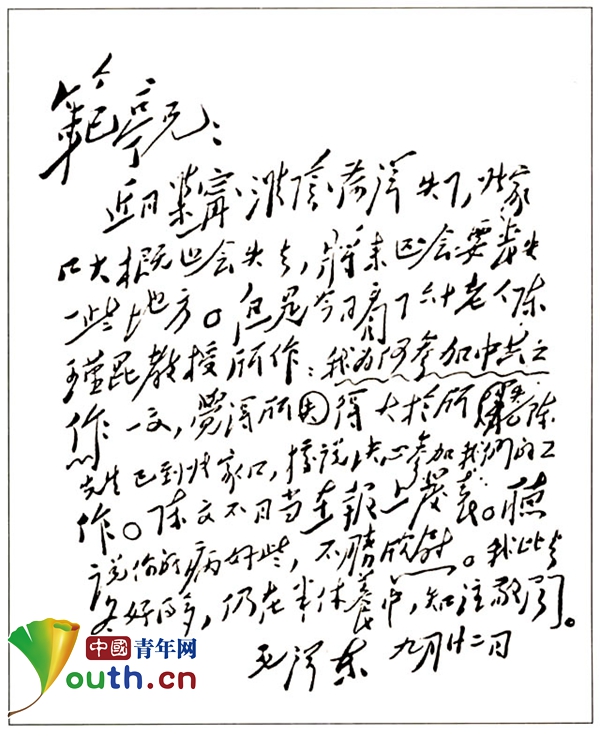 範亭兄：
近日集寧、淮陰、菏澤失了，张家
口大概也会失去，將来也会要丧失
一些地方。但是今日看了六十老人陈
瑾昆教授所作：我为何参加中共工
作 一文，覺得所得大於所 陈
先生已到张家口，据说决心参加我们的工
作。陈文不日当在報上發表。聽
说你的病好些，不勝欣慰。我比去
冬好得多，仍在半休養中，知注敬闻。
毛澤东 九月廿二日
中國青年网
Youth.cn